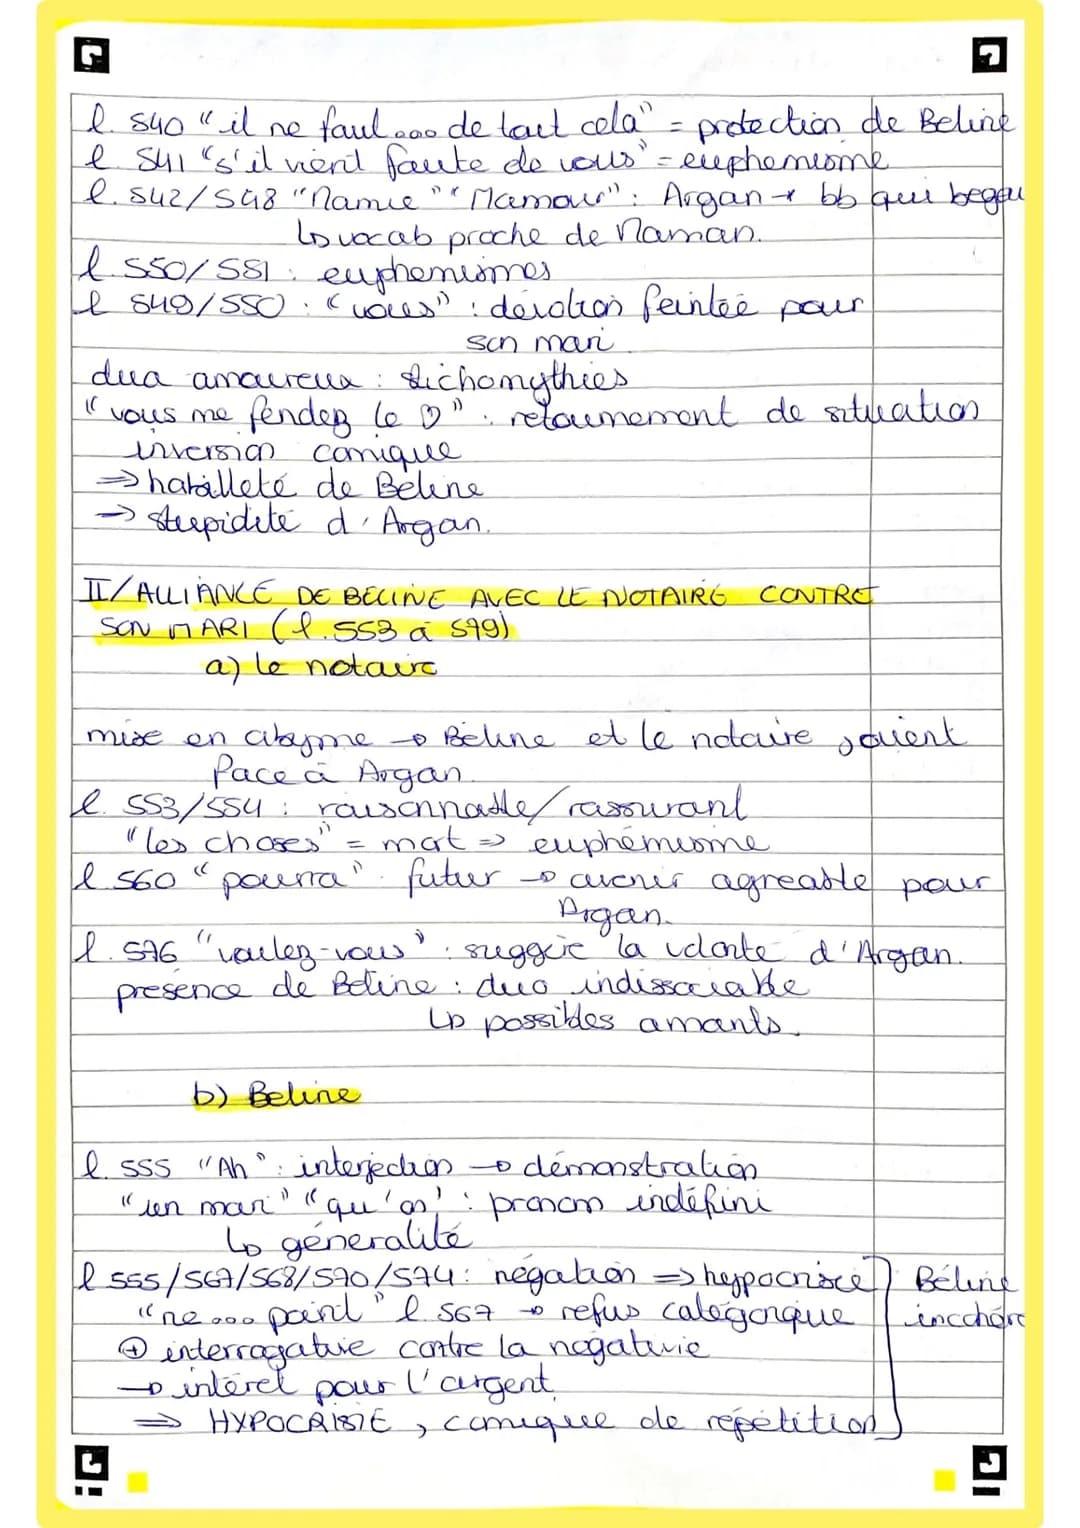 l. 540 "il ne faut... de tout cela" = protection de Beline
l. 541 "s'il vient faute de vous" = euphemisme
l. 542/548 "Mamie" "Mamour" : Argan → bb qui begau
↳ vocab proche de Maman.
l. 550/551 : euphemismes
l 549/550 : "vous" : dévotion feintée pour
son mari
duo amoureux : stichomythies
"vous me fendez le ♡" : retournement de situation
inversion comique
⇒ habilleté de Beline
→ stupidité d'Argan.
II/ ALLIANCE DE BELINE AVEC LE NOTAIRE CONTRE
SON MARI (l. 553 à 579)
a) le notaire
mise en abyme → Béline et le notaire jouent
face à Argan.
l. 553/554 : raisonnable/rassurant
"les choses" = mort ⇒ euphémisme
l 560 "pourra" : futur → avenir agreable pour
Argan.
l. 576 "voulez-vous" : suggère la volonte d'Argan.
presence de Beline : duo indissociable
↳ possibles amants.
b) Beline
l. 555 "Ah" : interjection → démonstration
"un mari" "qu'on" : pronom indéfini
↳ généralité
l 555/567/568/570/574 : négation ⇒ hypocrisie } Béline
"ne... point" l. 567 → refus catégorique incohére
⊕ interrogative contre la nogative
→ intéret pour l'argent
⇒ HYPOCRISIE, comique de répétition